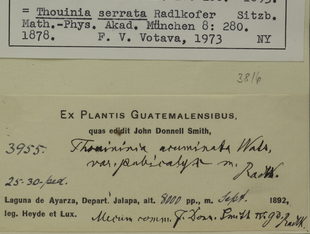 = Thouinia serrata Radlkofer Sitzb.
Math.-Phys. Akad. München 8: 280.
1878. F. V. Votava, 1973 NY
3816
EX PLANTIS GUATEMALENSIBUS,
quas edidit John Donnell Smith,
3955. Thouininia acuminata Wats,
var. pubicalyx m. Radlk.
25-30-ped.
Laguna de Ayarza, Depart. Jalapa, alt. 8000 pp., m. Sept. 1892,
leg. Heyde et Lux. Mecum comm. J. Donn. Smith Radlk